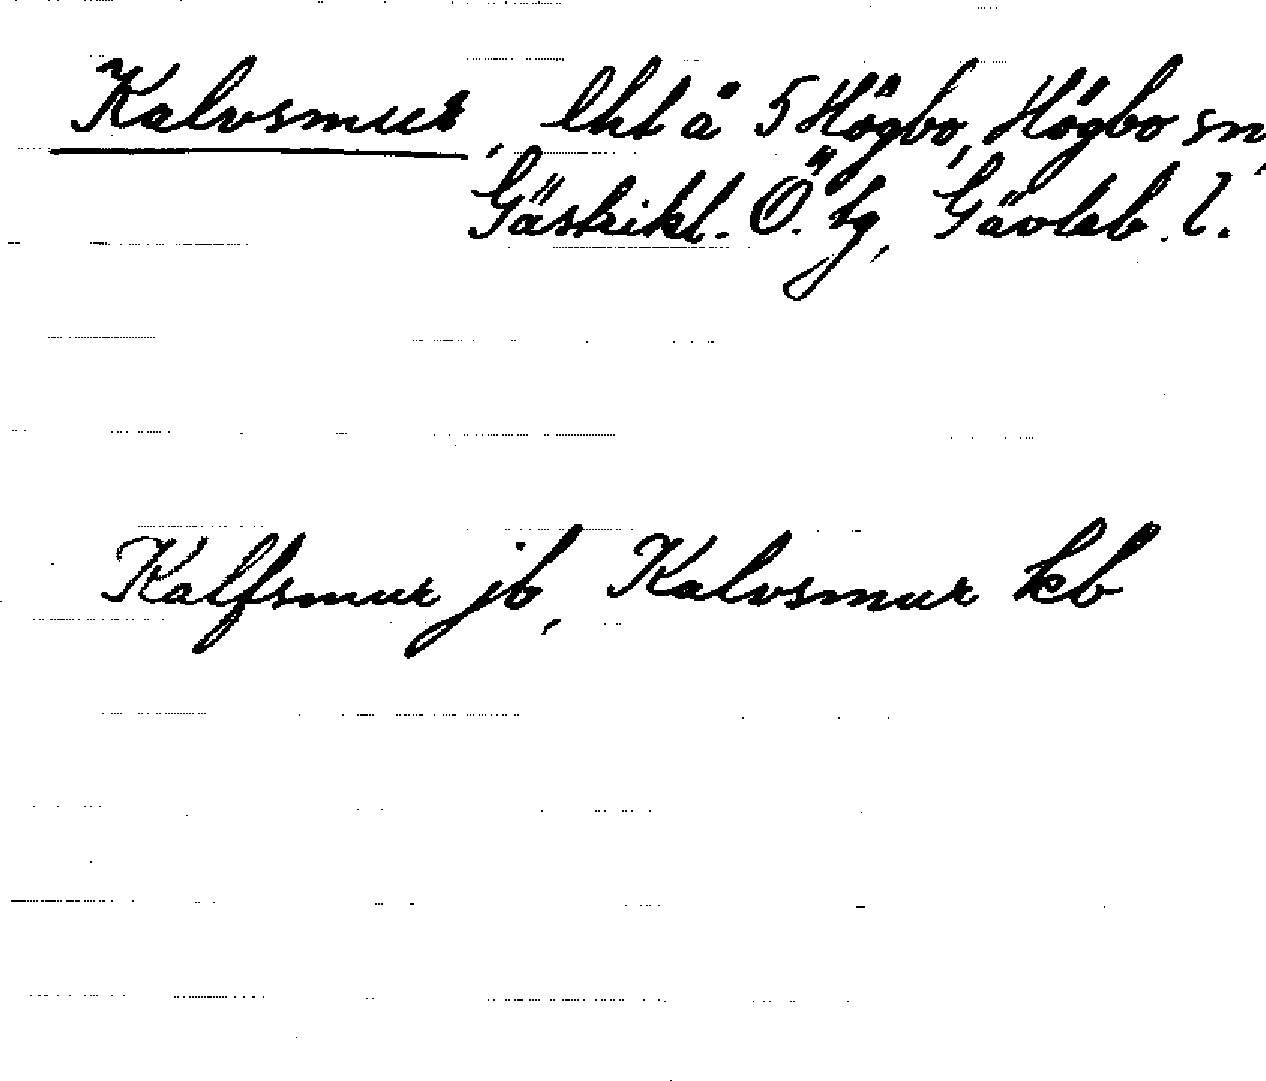 Kalvsmur, lht å 5 Högbo, Högbo sn,
Gästrikl. Ö. tg, Gävleb. l.
Kalfsmur jb, Kalvsmur kb